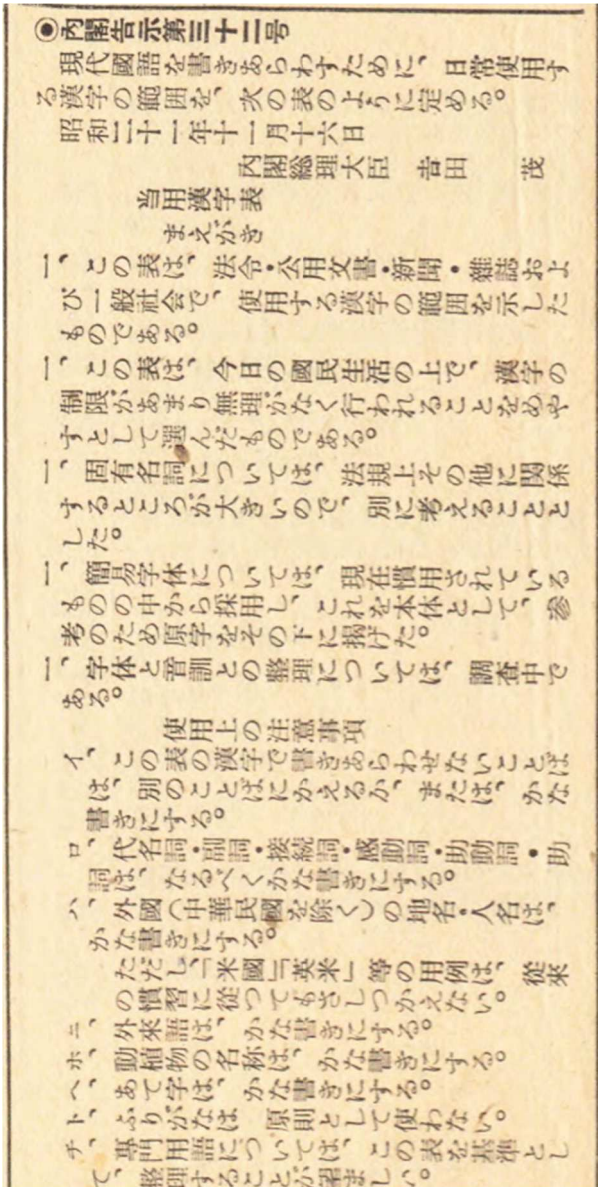 ◉內閣告示第三十二号
現代國語を書きあらわすために、日常使用す
る漢字の範囲を、次の表のように定める。
昭和二十一年十一月十六日
内閣総理大臣 吉田 茂
当用漢字表
まえがき
一、この表は、法令・公用文書・新聞・雑誌およ
び一般社会で、使用する漢字の範囲を示した
ものである。
一、この表は、今日の國民生活の上で、漢字の
制限があまり無理がなく行われることをめや
すとして選んだものである。
一、固有名詞については、法規上その他に関係
するところが大きいので、別に考えることと
した。
一、簡易字体については、現在慣用されている
ものの中から採用し、これを本体として、参
考のため原字をその下に掲げた。
一、字体と音訓との整理については、調査中で
ある。
使用上の注意事項
イ、この表の漢字で書きあらわせないことば
は、別のことばにかえるか、または、かな
書きにする。
ロ、代名詞・副詞・接続詞・感動詞・助動詞・助
詞は、なるべくかな書きにする。
ハ、外國(中華民國を除く)の地名・人名は、
かな書きにする。
ただし、「米國」「英米」等の用例は、從來
の慣習に從つてもさしつかえない。
ニ、外来語は、かな書きにする。
ホ、動植物の名称は、かな書きにする。
ヘ、あて字は、かな書きにする。
ト、ふりがなは 原則として使わない。
チ、専門用語については、この表を基準とし
て、整理することが望ましい。